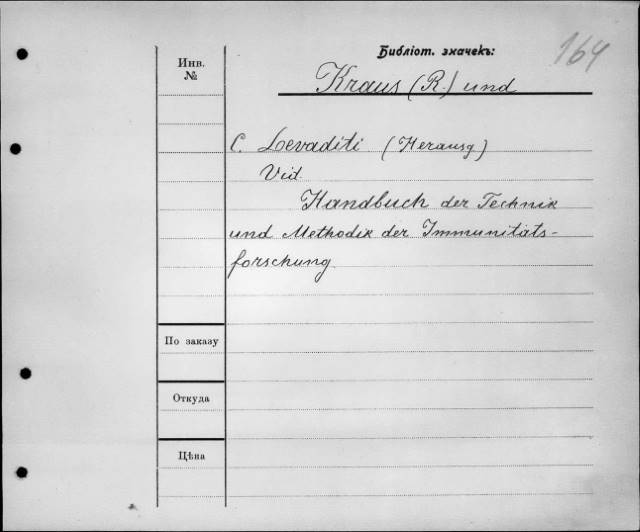 Библіот. значекъ:
164
Инв.
№
Kraus (R.) und
C. Levaditi (Herausg)
Vid.
Handbuch der Technik
und Methodik der Immunitäts-
forschung.
По заказу
Откуда
Цѣна